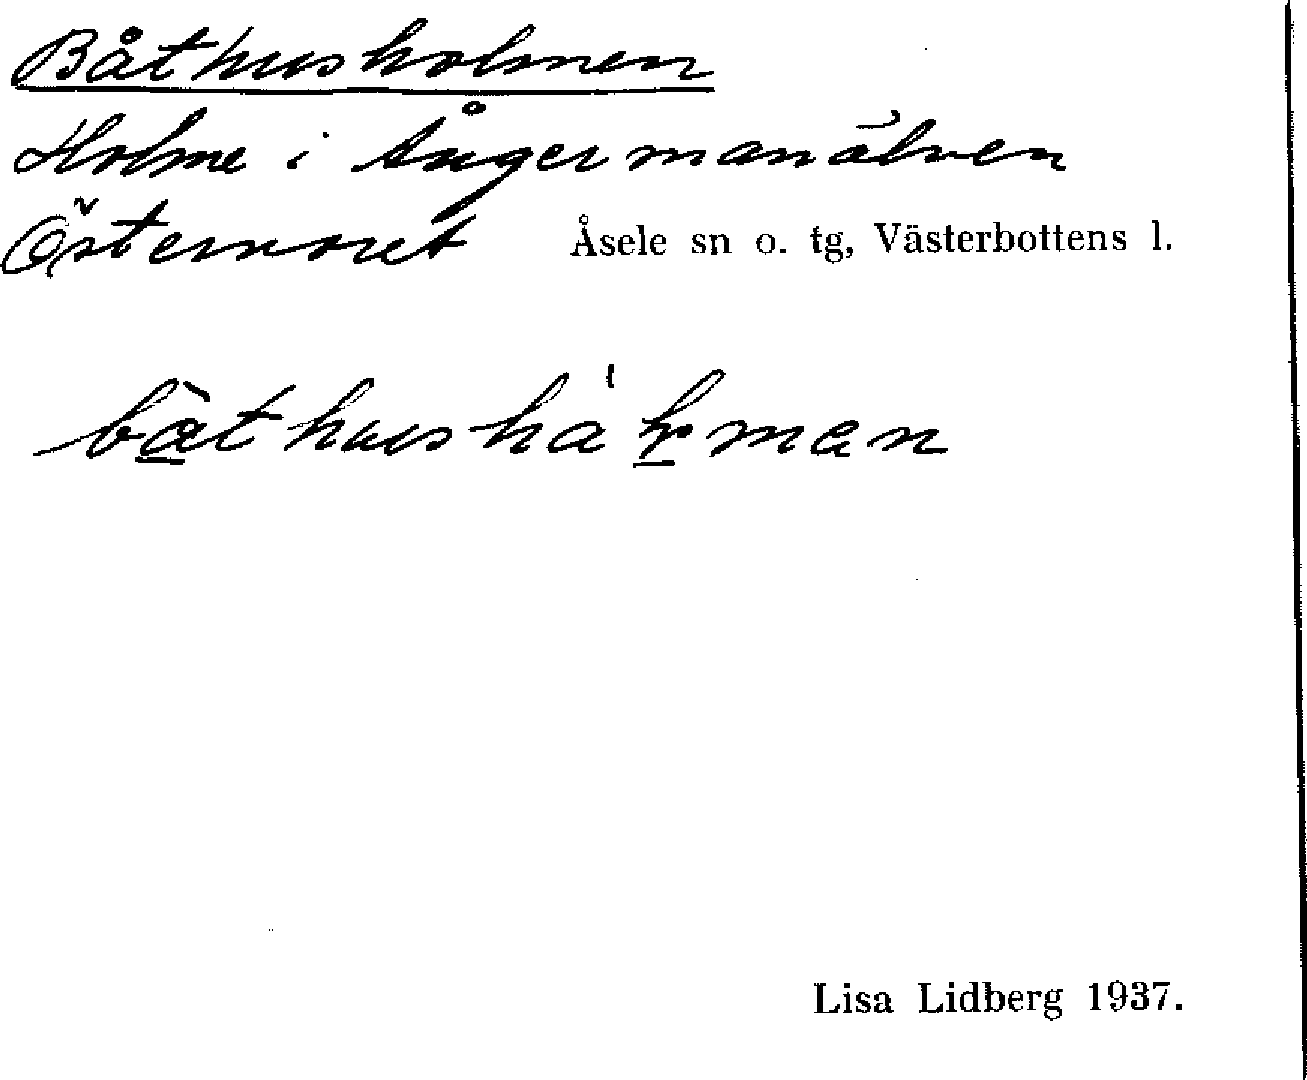 Båthusholmen
Holme i Ångermanälven
Östernoret Åsele sn o. tg, Västerbottens l.
Lisa Lidberg 1937.